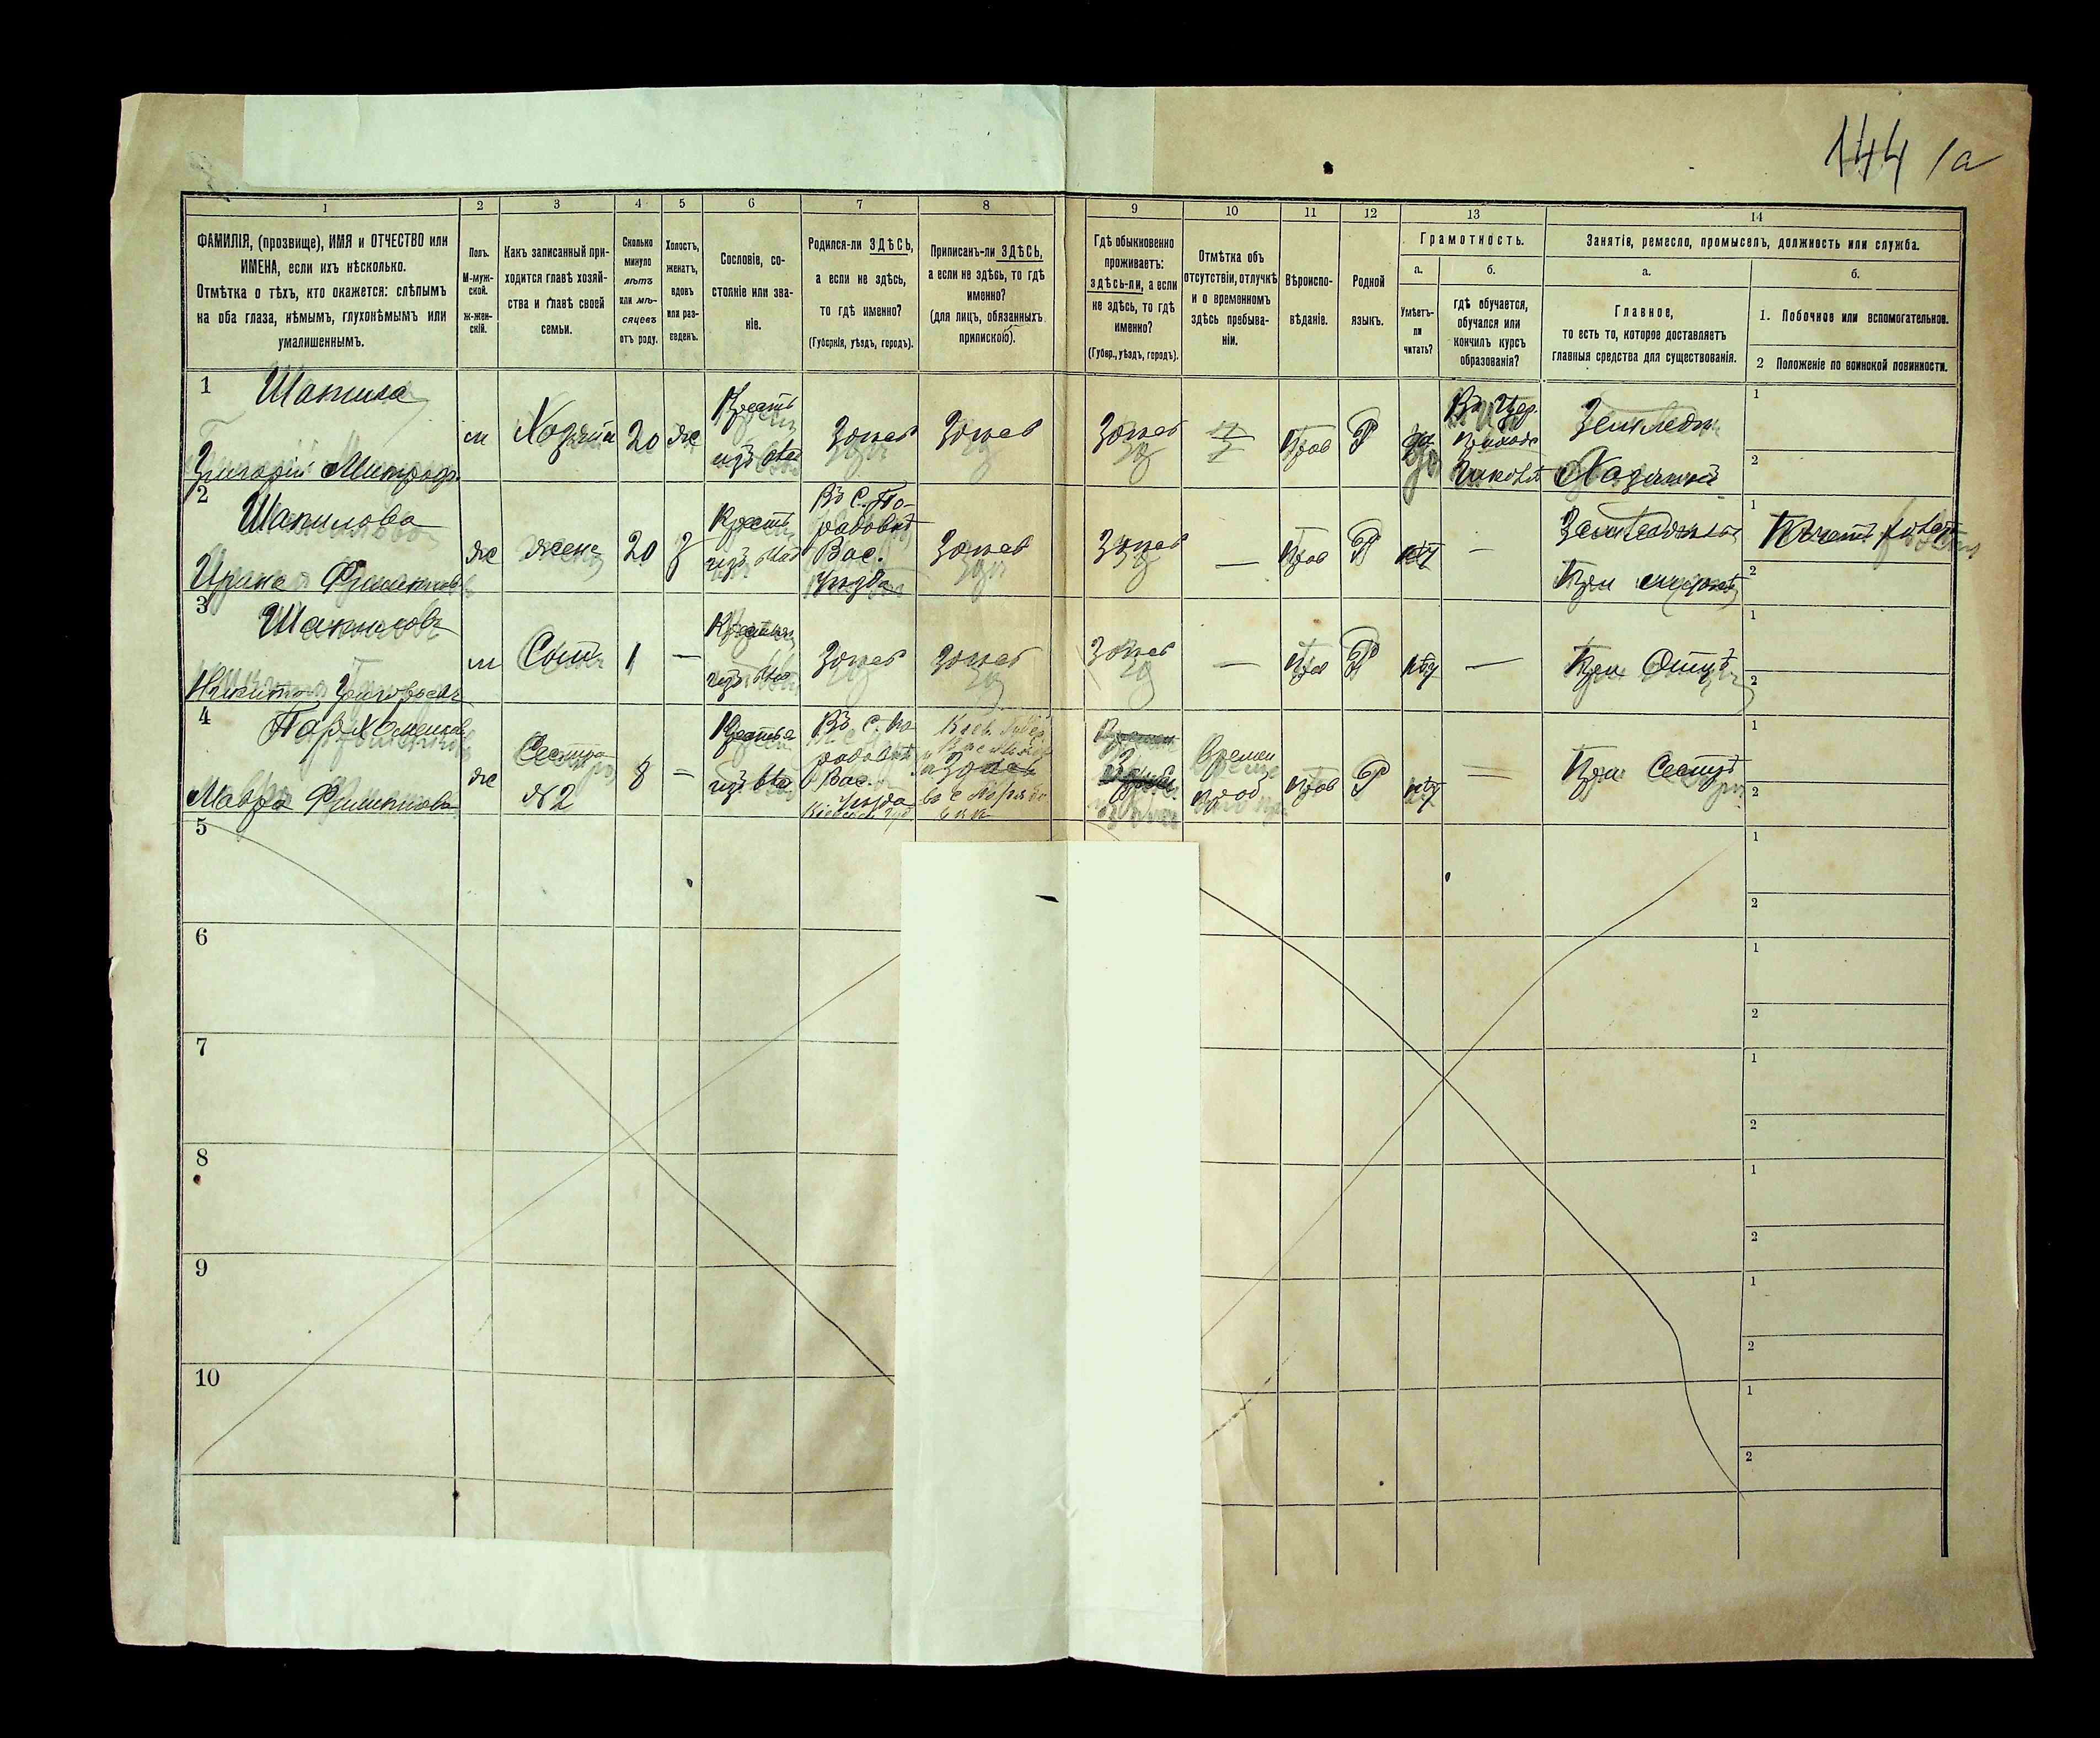 144 1а
1
2
3
4
5
6
7
8
9
10
11
12
13
14
ФАМИЛІЯ, (прозвище), ИМЯ и ОТЧЕСТВО или
ИМЕНА, если ихъ нѣсколько.
Отмѣтка о тѣхъ, кто окажется: слѣпымъ
на оба глаза, нѣмымъ, глухонѣмымъ или
умалишеннымъ.
Полъ.
М-муж-
ской.
ж-жен-
скій.
Какъ записанный при-
ходится главѣ хозяй-
ства и главѣ своей
семьи.
Сколько
минуло
лѣтъ
или мѣ-
сяцевъ
отъ роду.
Холостъ,
женатъ,
вдовъ
или раз-
веденъ.
Сословіе, со-
стояніе или зва-
ніе.
Родился-ли ЗДѢСЬ,
а если не здѣсь,
то гдѣ именно?
(Губернія, уѣздъ, городъ).
Приписанъ-ли ЗДѢСЬ,
а если не здѣсь, то гдѣ
именно?
(для лицъ, обязанныхъ
припиской).
Гдѣ обыкновенно
проживаетъ:
здѣсь-ли, а если
не здѣсь, то гдѣ
именно?
(Губер., уѣздъ, городъ).
Отмѣтка объ
отсутствіи, отлучкѣ
и о временномъ
здѣсь пребыва-
ніи.
Вѣроиспо-
вѣданіе.
Родной
языкъ.
Грамотность.
а.
Умѣетъ-
ли
читать?
б.
гдѣ обучается,
обучался или
кончилъ курсъ
образованія?
Занятія, ремесло, промыселъ, должность или служба.
а.
Главное,
то есть то, которое доставляетъ
главныя средства для существованія.
б.
1. Побочное или вспомогательное.
2 Положеніе по воинской повинности.
1
Григорій Митроф.
м
Хозяинъ
20
же
Крест
изъ влад
Здѣсь
Здѣсь
Здѣсь
Прав
Р
да
Въ Цер.
приход
Земледѣл
Хозяинъ
1
2
2
Шапилова
Ирина Филиппова
же
жена
20
З
Крест
изъ влад
Въ С.
Вас.
Уѣзда
Здѣсь
Здѣсь
—
Прав
Р
нѣт
—
При мужѣ
1
2
3
Шапиловъ
Никита Григорьевъ
м
Сынъ
1
—
изъ влад
Здѣсь
Здѣсь
Здѣсь
—
Прав
Р
нѣт
—
При Отцѣ
1
2
4
Мавра Филиппова
же
Сестра
№2
8
—
изъ вла.
Въ с.
Вас.
Уѣзда
Кіевск. Губ.
Кіев. Губер.
Времен
прож
Прав
Р
нѣт
—
При Сестрѣ
1
2
5
1
2
6
1
2
7
1
2
8
1
2
9
1
2
10
1
2